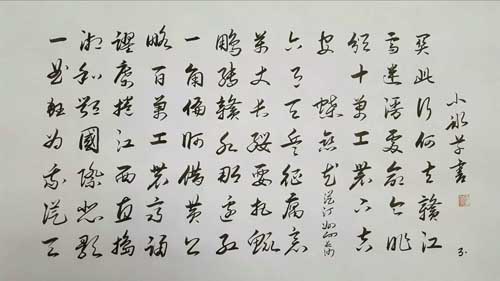 关此行何去贛江
雪迷漫處命令昨
頒十萬工農下吉
安 蝶戀花 從汀州向長沙
六月天兵征腐惡
萬丈長纓要把鯤
鵬縛贛水那邊紅
一角偏師借黃公
略百萬工農齊踴
躍席捲江西直搗
湘和鄂國際悲歌
一曲狂为我從天
小冰草書